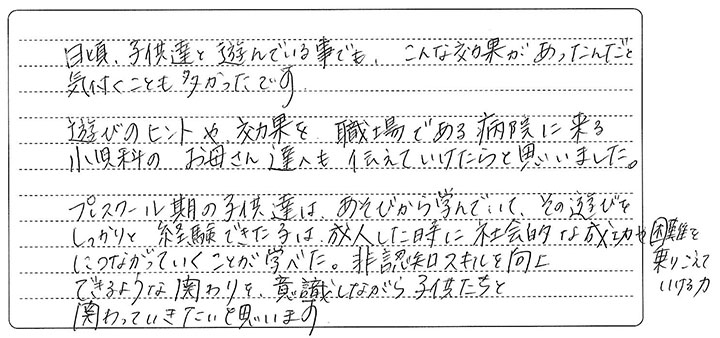 日頃、子供達と遊んでいる事でも、こんな効果があったんだと
気付くことも多かったです
遊びのヒントや効果を職場である病院に来る
小児科のお母さん達へも伝えていけたらと思いました。
プレスクール期の子供達は、あそびから学んでいて、その遊びを
しっかりと経験できた子は、成人した時に社会的な成功や困難を
乗りこえて
いける力
につながっていくことが学べた。非認知スキルを向上
できるような関わりを、意識しながら子供たちと
関わっていきたいと思います